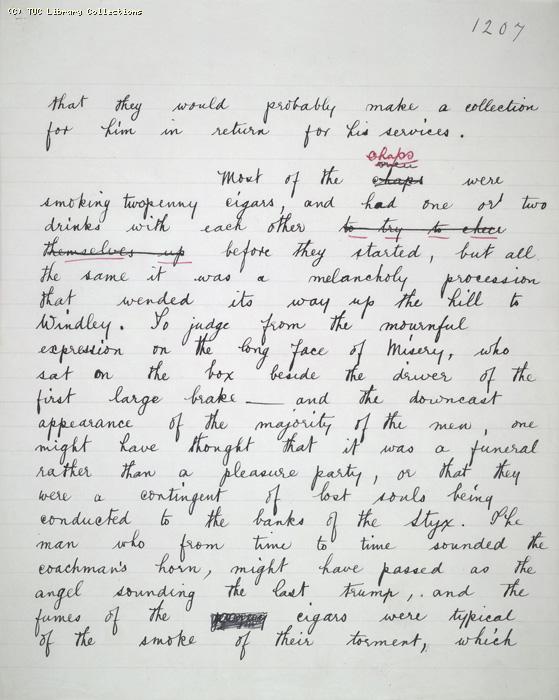 (C) TUC Library Collections
1207
that they would probably make a collection
for him in return for his services.
chaps
men
Most of the chaps were
smoking twopenny cigars, and had one or two
drinks with each other to try to cheer
themselves up before they started, but all
the same it was a melancholy procession
that wended its way up the hill to
Windley. To judge from the mournful
expression on the long face of Misery, who
sat on the box beside the driver of the
first large brake — and the downcast
appearance of the majority of the men, one
might have thought that it was a funeral
rather than a pleasure party, or that they
were a contingent of lost souls being
conducted to the banks of the Styx. The
man who from time to time sounded the
coachman's horn, might have passed as the
angel sounding the last trump, and the
fumes of the cigars were typical
of the smoke of their torment, which